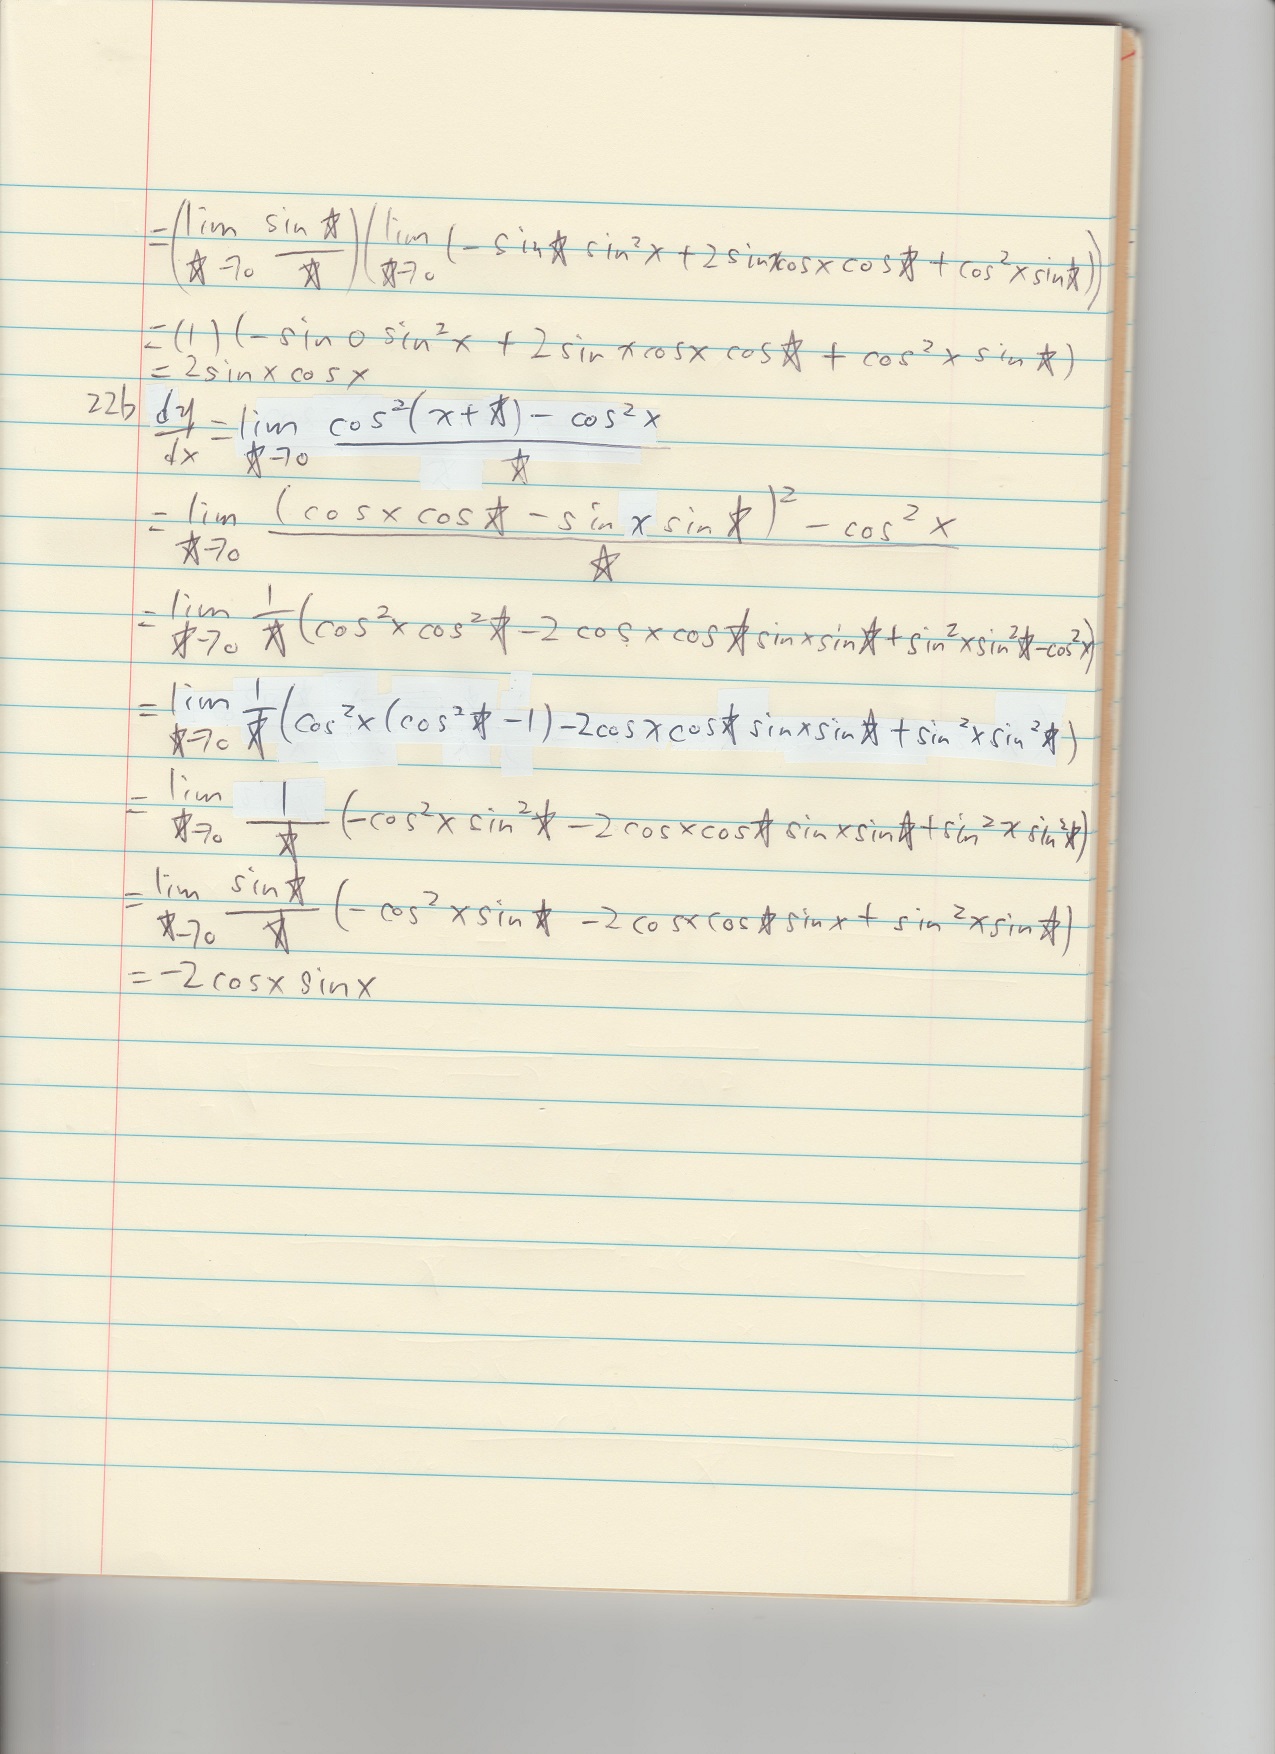 =(lim ☆→0 sin☆/☆)(lim ☆→0 (-sin☆ sin²x+2sinxcosx cos☆+cos²x sin☆))
=(1)(-sin 0 sin²x+2sinxcosx cos☆+cos²x sin☆)
=2sinx cosx
22b dy/dx=lim ☆→0 (cos²(x+☆)-cos²x)/☆
=lim ☆→0 ((cosx cos☆-sin x sin☆)²-cos²x)/☆
=lim ☆→0 1/☆(cos²x cos²☆-2 cosx cos☆ sinx sin☆+sin²x sin²☆-cos²x)
=lim ☆→0 1/☆(cos²x(cos²☆-1)-2cosx cos☆ sinx sin☆+sin²x sin²☆)
=lim ☆→0 1/☆(-cos²x sin²☆-2 cosx cos☆ sinx sin☆+sin²x sin²☆)
=lim ☆→0 sin☆/☆(-cos²x sin☆-2 cosx cos☆ sinx+sin²x sin☆)
=-2cosx sinx